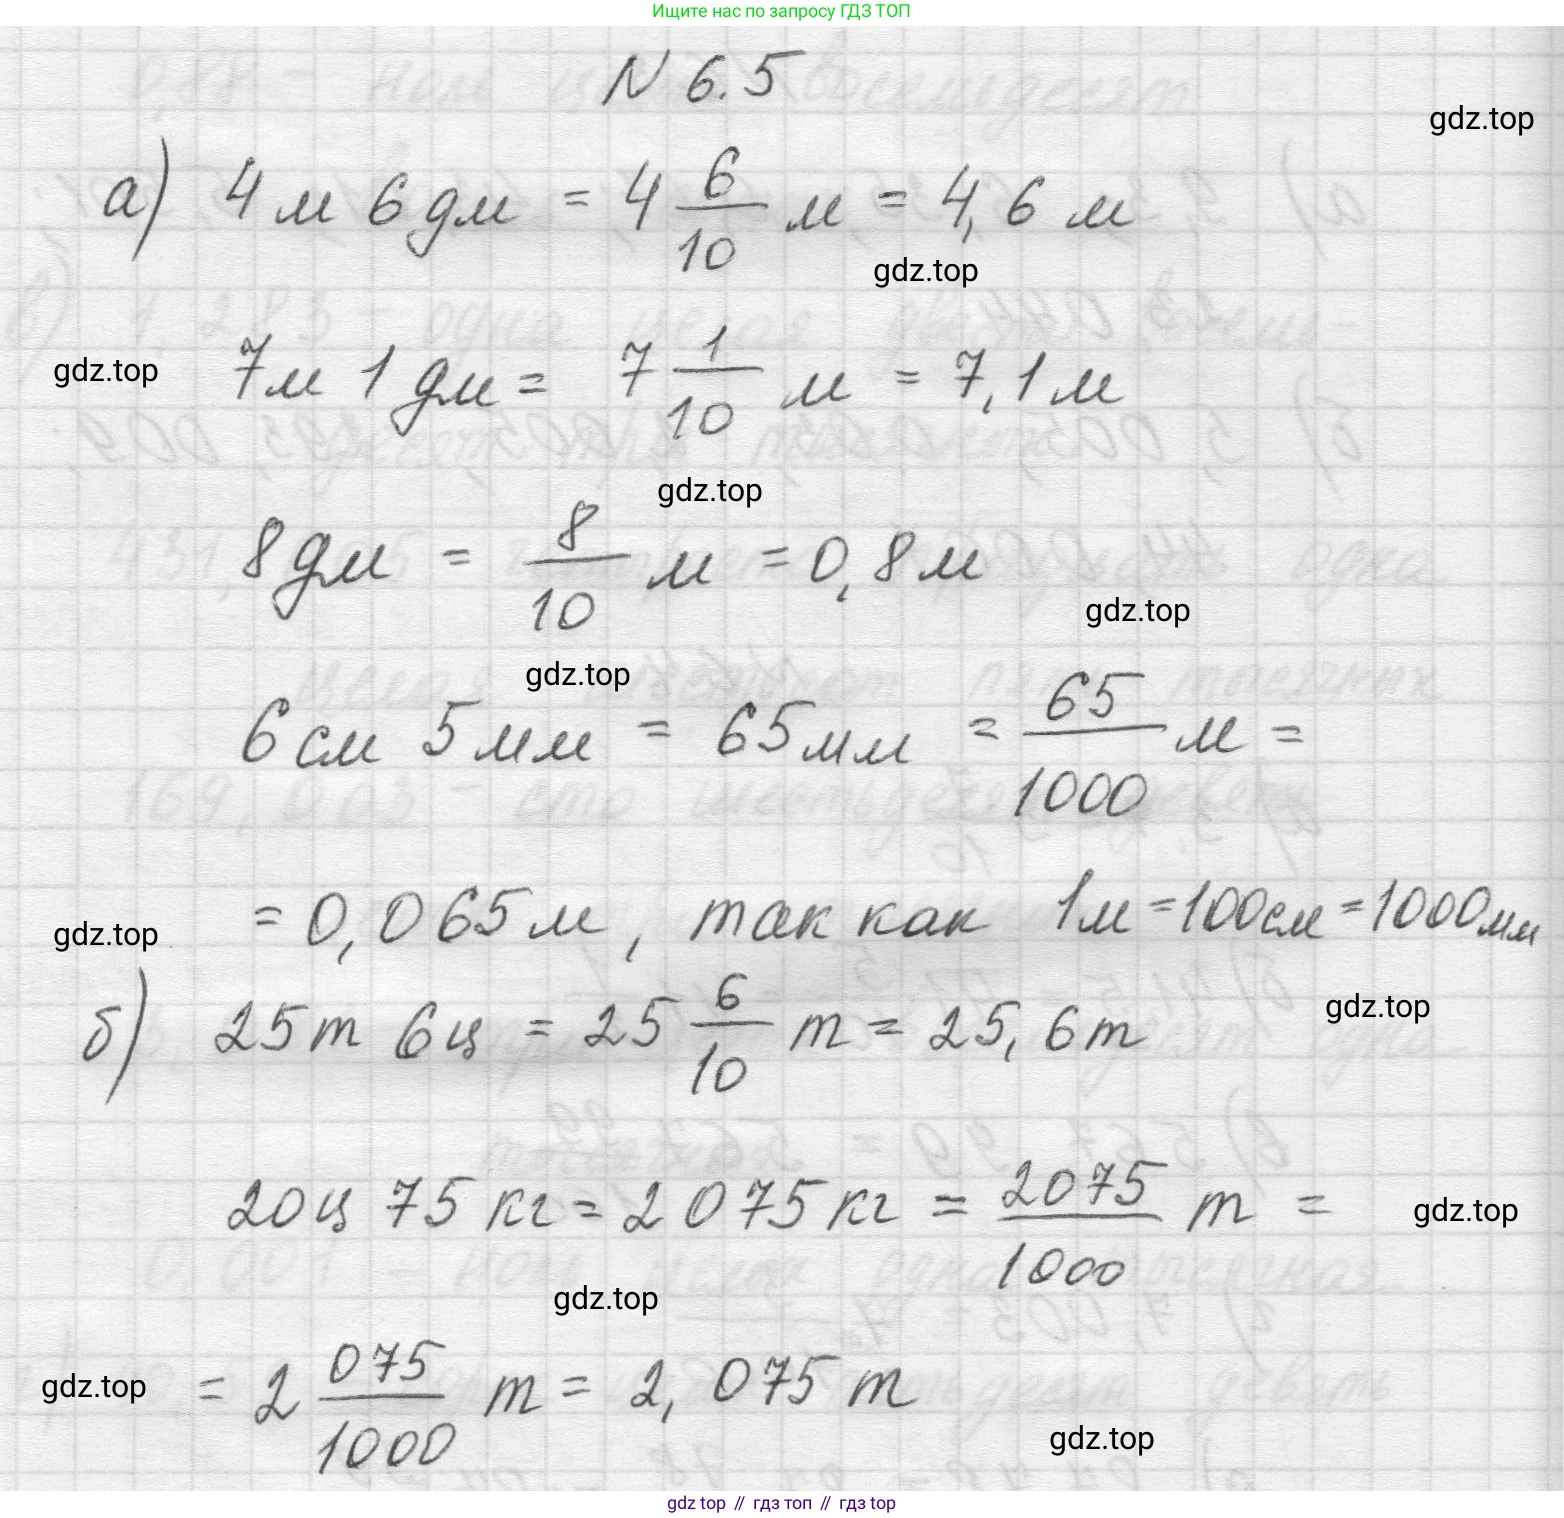 Ищите нас по запросу ГДЗ ТОП
N 6.5
gdz.top
а) 4 м 6 дм = 4 6/10 м = 4,6 м
gdz.top
gdz.top
7м 1 дм = 7 1/10 м = 7,1 м
gdz.top
8 дм = 8/10 м = 0,8 м
gdz.top
gdz.top
6 см 5 мм = 65 мм = 65/1000 м =
= 0,065 м, так как 1м = 100см = 1000мм
gdz.top
gdz.top
б) 25 т 6 ц = 25 6/10 т = 25,6 т
20 ц 75 кг = 2 075 кг = 2075/1000 т =
gdz.top
gdz.top
= 2 075/1000 т = 2,075 т
gdz.top
gdz.top
gdz top // гдз топ // гдз top